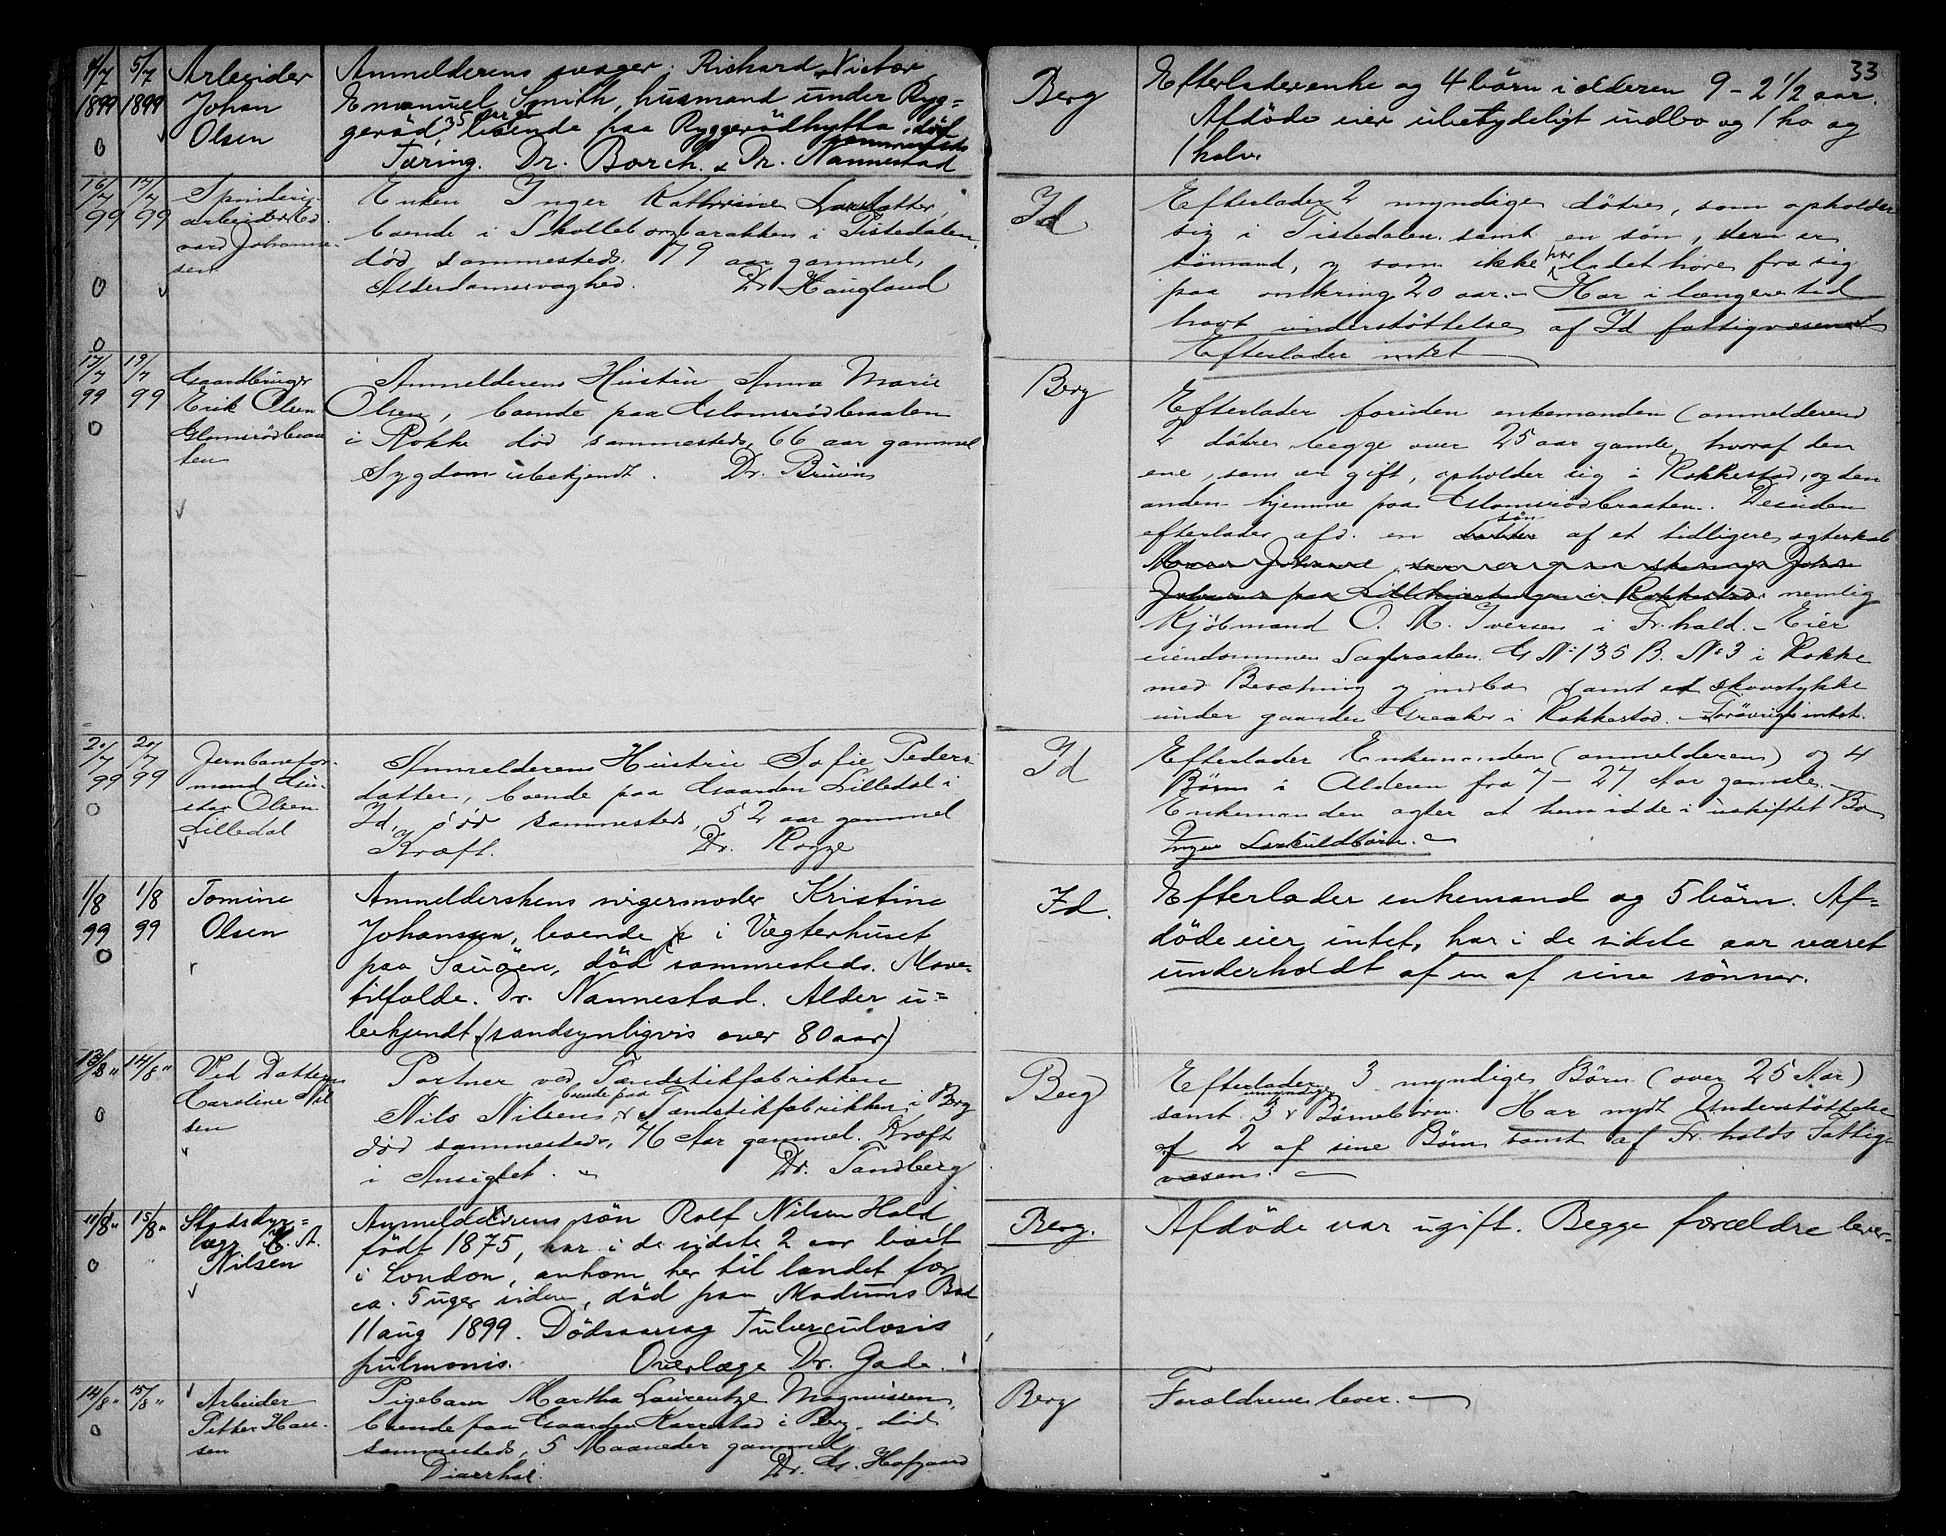 33
4/7 5/7 Arbeider
1899 1899 Johan
0 Olsen
Anmelderens svoger Richard Victor
Emanuel Smith, husmand under Ryg=
geröd, 35 aar, boende paa Ryggerödhytta död
sammesteds
Tæring. Dr. Borch. Dr. Nannestad
Berg
Efterlader enke og 4 börn i alderen 9 - 2 1/2 aar.
Afdöde eier ubetydeligt indbo og 1 ko og
1 kalv.
16/7 17/7 Spinderi-
99 99 arbeider Ed-
vard Johanne-
sen
0
0
Enken Inger Kathrine Larsdatter,
boende i Skollebergbarakken i Tistedalen
död sammesteds. 79 aar gammel,
Alderdomssvaghed. Dr. Haugland
Id
Efterlader 2 myndige døtre, som opholder
sig i Tistedalen samt en søn, der er
sömand, og som ikke har ladet høre fra sig
paa omkring 20 aar. - Har i længere tid
havt understöttelse af Id fattigvæsen
Efterlader intet
17/7 19/7 Gaardbruger
99 99 Erik Olsen
0 Glomsrödbraa
ten
Anmelderens Hustru Anna Marie
Olsen, boende paa Glomsrödbraaten
i Rokke död sammesteds, 66 aar gammel
Sygdom ubekjendt. Dr. Bruun
Berg
Efterlader foruden enkemanden (anmelderen)
2 døtre begge over 25 aar gamle, hvoraf den
ene, som er gift, opholder sig i Rakkestad, og den
anden hjemme paa Glomsrödbraaten. Desuden
efterlader afd. en datter søn af et tidligere ægteskab
paa i Rakkestad nemlig
Kjöbmand O. M. Iversen i Fr.hald. - Eier
eiendommen Sagbraaten G No 135 B. No 3 i Rokke
med Besætning og indbo samt et skovstykke
under gaarden Greaker i Rakkestad. - Forövrigt intet.
20/7 20/7 Jernbanefor-
99 99 mand Gu-
0 stav Olsen
Lilledal
Anmelderens Hustru Sofie Peders
datter, boende paa Gaarden Lilledal i
Id, død sammesteds, 52 aar gammel
Kræft. Dr. Rogge
Id
Efterlader Enkemanden (anmelderen) og 4
Børn i Alderen fra 7 - 27 Aar gamle. -
Enkemanden agter at hensidde i uskiftet Bo
Ingen Særkuldbörn. -
1/8 1/8 Tomine
99 99 Olsen
0
Anmelderskens svigermoder Kristine
Johansen, boende i Vægterhuset
paa Sauöen, död sammesteds. Mave-
tilfælde. Dr. Nannestad. Alder u=
bekjendt (sandsynligvis over 80 aar)
Id.
Efterlader enkemand og 5 börn. Af=
döde eier intet, har i de sidste aar været
underholdt af en af sine sønner.
13/8 " 14/8 " Ved Datteren
0 Caroline Nil
sen
Portner ved Tændstikfabrikken
Nils Nilsen, boende paa Tændstikfabrikken i Berg
død sammesteds, 76 Aar gammel. Kræft
i Ansigtet. - Dr. Sandberg
Berg
Efterlader 3 myndige Børn (over 25 Aar)
samt 3 umyndige Børnebörn. Har nydt Understöttelse
af 2 af sine Børn samt af Fr.halds Fattig-
væsen. -
11/8 " 15/8 " Stadsdyr=
0 læge N. A.
Nilsen
Anmelderens sön Rolf Nilsen Hald
født 1875, har i de sidste 2 aar boet
i London, ankom her til landet for
ca. 5 uger siden, død paa Modums Bad
11 aug 1899. Dödsaarsag Tuberculosis
pulmonis. Overlæge Dr. Gade.
Berg.
Afdöde var ugift. Begge forældre lever.
14/8 " 15/8 " Arbeider
0 Petter Han-
sen
Pigebarn Martha Laurentze Magnussen,
boende paa Gaarden Karrestad i Berg, død
sammesteds, 5 Maaneder gammel.
Diarrhoe. Dr. G. Hofgaard
Berg
Forældrene lever. -